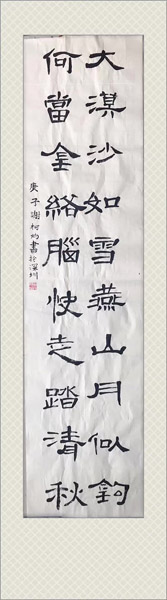 大漠沙如雪燕山月似鉤
何當金絡腦快走踏清秋
庚子謝柯灼書於深圳